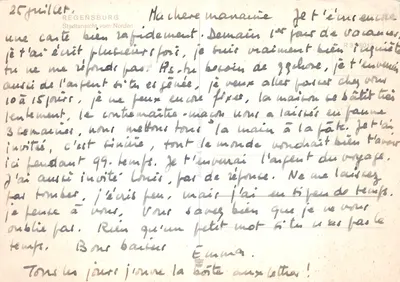 25 juillet.
REGENSBURG
Ma chère mamanie Je t'écris encore
une carte bien rapidement. Demain 1er jour de vacances,
je t'ai écrit plusieurs fois, je suis vraiment bien inquiète
tu ne me réponds pas. As-tu besoin de qqchose, je t'enverrai
aussi de l'argent si tu es gênée, je veux aller passer chez vous
10 à 15 jours, je ne peux encore fixer, la maison se bâtit très
lentement, le contremaître-maçon nous a laissés en panne
3 semaines, nous mettons tous la main à la pâte. Je t'ai
invité, c'est sincère, tout le monde voudrait bien t'avoir
ici pendant qq. temps. Je t'enverrai l'argent du voyage.
J'ai aussi invité Louis, pas de réponse. Ne me laissez
pas tomber, j'écris peu, mais j'ai eu si peu de temps.
je pense à vous, vous savez bien que je ne vous
oublie pas. Rien qu'un petit mot si tu n'as pas le
temps. Bons baisers
Emma
Tous les jours j'ouvre la boîte aux lettres !